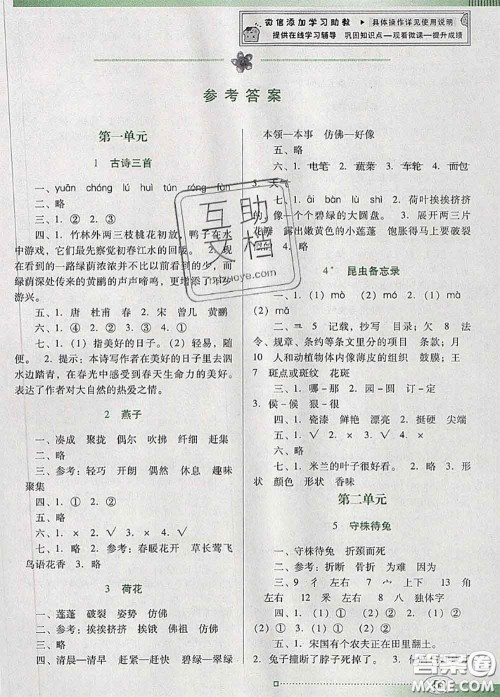 微信添加学习助教
具体操作详见使用说明
提供在线学习辅导 巩固知识点—观看微课—提升成绩
参考答案
第一单元
1 古诗三首
一、yuān chóng lú huì tún róng fán
四、1. 竹林外两三枝桃花初放,鸭子在水
中游戏,它们最先察觉初春江水的回暖。2. 现
在看到的一路绿荫浓浓并不比来的时候少,而
绿荫深处传来的黄鹂的声声啼鸣,更增添了些
游兴。
五、1. 唐 杜甫 春 2. 宋 曾几 黄鹂
六、④ ② ① ③
七、1. (1)指美好的日子。(2)轻易,随
便。2. 提示:本诗写作者在美好的日子里去泗
水边踏青,在春光中感受到春天生命力的美好。
表达了作者对大自然的热爱之情。
2 燕子
一、凑成 聚拢 偶尔 吹拂 纤细 赶集
二、略
三、参考:轻巧 开朗 偶然 休息 趣味
聚集
四、1. ① 2. ②
五、略
六、1. × 2. √ 3. × 4. √
七、1. 略 2. 参考:春暖花开 草长莺飞
鸟语花香 3. 略
3 荷花
一、莲蓬 破裂 姿势 仿佛
二、参考:挨挨挤挤 挨饿 佛祖 仿佛
三、略
四、清晨—清早 赶紧—赶快 碧绿—翠绿
本领—本事 仿佛—好像
五、略
六、1. 电笔 2. 蔬菜 3. 车轮 4. 面包
5. 天气
七、1. āi bàn luò hú 2. 荷叶挨挨挤挤
的,像一个个碧绿的大圆盘。3. 展开两三片
花瓣 露出嫩黄色的小莲蓬 饱胀得马上要破
裂似的
4* 昆虫备忘录
一、1. (1)mò (2)mó 2. (1)mā
(2)mà
二、略
10 人和动植物体内像薄皮的组织 鼓膜;王
7 斑点或斑纹 花斑
三、1. 哪—那 2. 园—圆 订—定
3. 侯—候 狠—很
四、1. 瓷漆 鲜艳 漂亮 2. 挺硬 尖端
五、1. √ 2. × 3. √ 4. √
状 颜色 形状 香味
第二单元
5 守株待兔
一、守株待兔 折颈而死
二、参考:判断 释放 其实 触角
左右 12 朱 左右 8 八 独体字
四、1. ② 2. ③ 3. ① 4. (1)①
(2)②
五、1. 宋国有个农夫正在田里翻土。